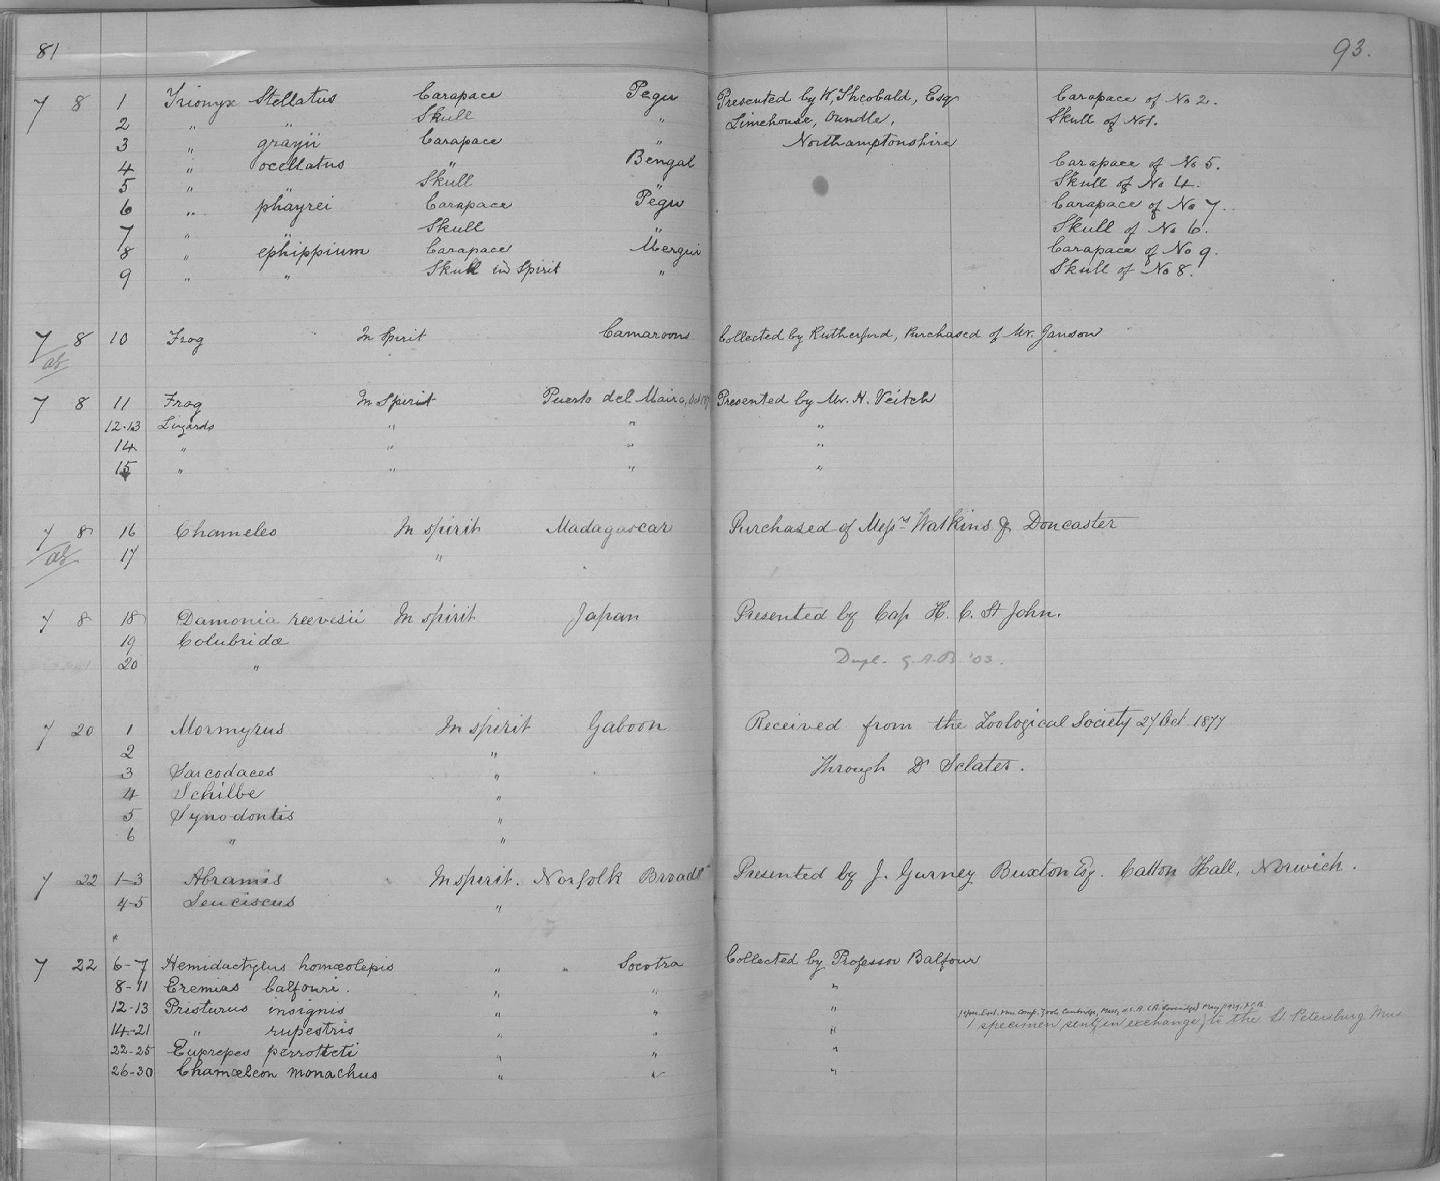 81 93.
7 8 1 Trionyx Stellatus Carapace Pegu Presented by W. Theobald, Esq Carapace of No 2.
2 " " Skull " Limehouse, Oundle, Skull of No 1.
3 " grayii Carapace " Northamptonshire
4 " ocellatus " Bengal Carapace of No 5.
5 " " Skull " Skull of No 4.
6 " phayrei Carapace Pegu Carapace of No 7.
7 " " Skull " Skull of No 6.
8 " ephippium Carapace Mergui Carapace of No 9.
9 " " Skull in Spirit " Skull of No 8.
7 8 10 Frog In Spirit Camaroons Collected by Rutherford, Purchased of Mr. Janson
7 8 11 Frog In Spirit Puerto del Presented by Mr. H. Veitch
12-13 Lizards " " "
14 " " " "
15 " " " "
7 8 16 Chameleo In spirit Madagascar Purchased of Messrs Watkins & Doncaster
17 "
7 8 18 Damonia reevesii In spirit Japan Presented by Cap H. C. St John.
19 Colubridæ
20 " Dupl. G.A.B. '03.
7 20 1 Mormyrus In spirit Gaboon Received from the Zoological Society 27 Oct 1877
2 "
3 Sarcodaces " Through Dr Sclater.
4 Schilbe "
5 Synodontis "
6 " "
7 22 1-3 Abramis In spirit. Norfolk Broads Presented by J. Gurney Buxton Esq. Catton Hall, Norwich.
4-5 Leuciscus "
7 22 6-7 Hemidactylus homœolepis " " Socotra Collected by Professor Balfour
8-11 Eremias balfouri. " " "
12-13 Pristurus insignis " " "
14-21 " rupestris " " " 1 specimen sent (in exchange) to the St. Petersburg Mus
22-25 Euprepes perrotteti " " "
26-30 Chamæleon monachus " " "